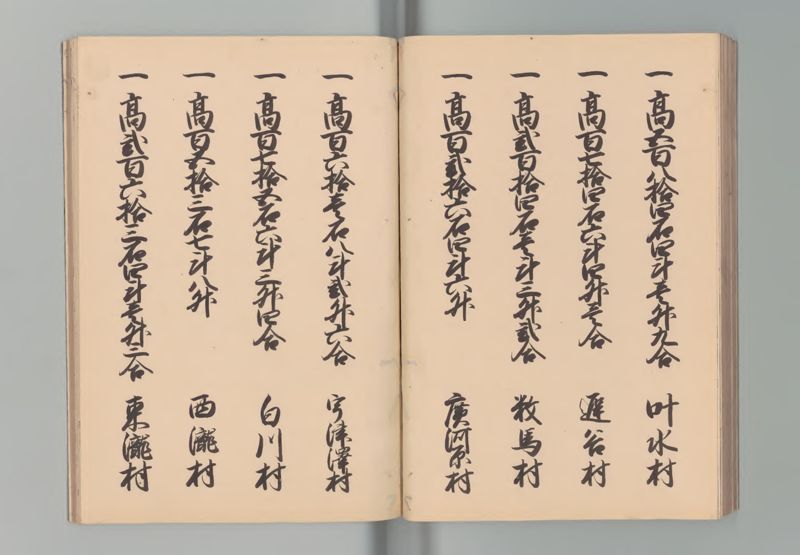 一 高五百八拾四石四斗壱升九合 叶水村
一 高百七拾四石六斗四升壱合 遅谷村
一 高弐百拾四石壱斗三升弐合 数馬村
一 高百弐拾六石四斗六升 廣河原村
一 高百六拾壱石八斗弐升六合 宇津澤村
一 高百七拾五石六斗三升四合 白川村
一 高百五拾三石七斗八升 西瀧村
一 高弐百六拾三石四斗壱升二合 東瀧村